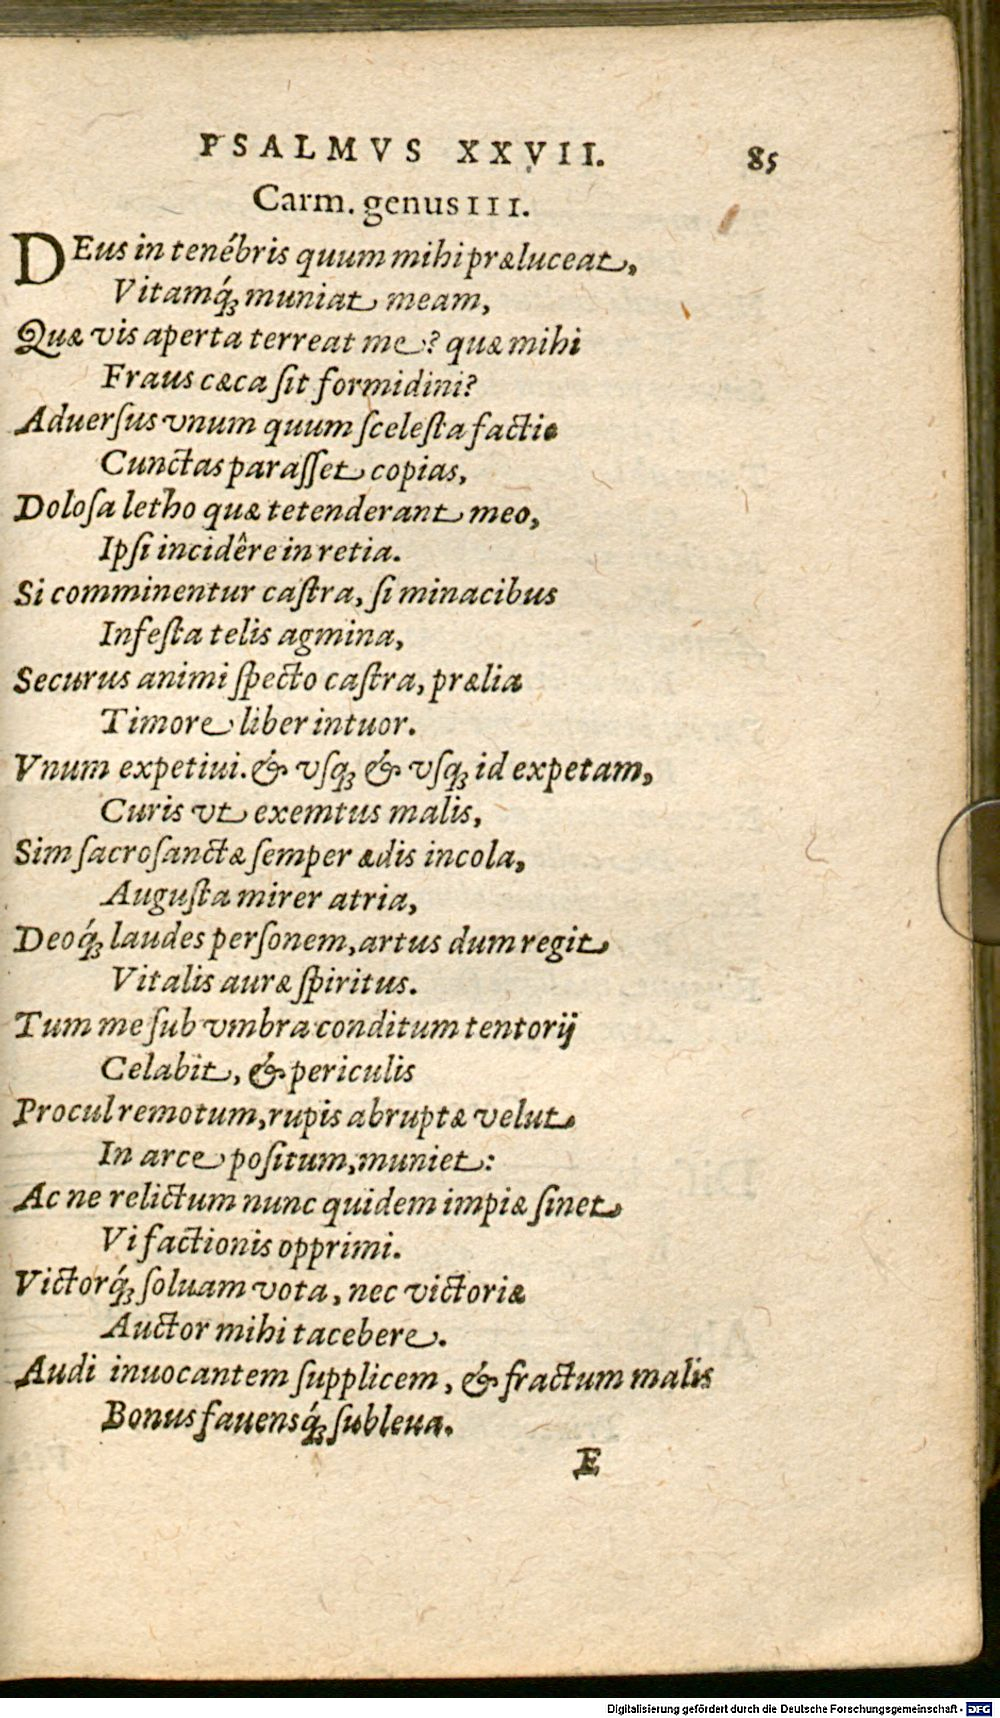 PSALMVS XXVII. 85
Carm. genus III.
DEus in tenébris quum mihi præluceat,
Vitamq́ꝫ muniat meam,
Quæ vis aperta terreat me? quæ mihi
Fraus cæca ſit formidini?
Aduerſus vnum quum ſceleſta factio
Cunctas paraſſet copias,
Doloſa letho quæ tetenderant meo,
Ipſi incidêre in retia.
Si comminentur caſtra, ſi minacibus
Infeſta telis agmina,
Securus animi ſpecto caſtra, prælia
Timore liber intuor.
Vnum expetiui. & vſqꝫ & vſqꝫ id expetam,
Curis vt exemtus malis,
Sim ſacroſanctæ ſemper ædis incola,
Auguſta mirer atria,
Deoq́ꝫ laudes perſonem, artus dum regit
Vitalis auræ ſpiritus.
Tum me ſub vmbra conditum tentorij
Celabit, & periculis
Procul remotum, rupis abruptæ velut
In arce poſitum, muniet:
Ac ne relictum nunc quidem impiæ ſinet
Vi factionis opprimi.
Victorq́ꝫ ſoluam vota, nec victoriæ
Auctor mihi tacebere.
Audi inuocantem ſupplicem, & fractum malis
Bonus fauensq́ꝫ ſubleua.
E
Digitalisierung gefördert durch die Deutsche Forschungsgemeinschaft - DFG